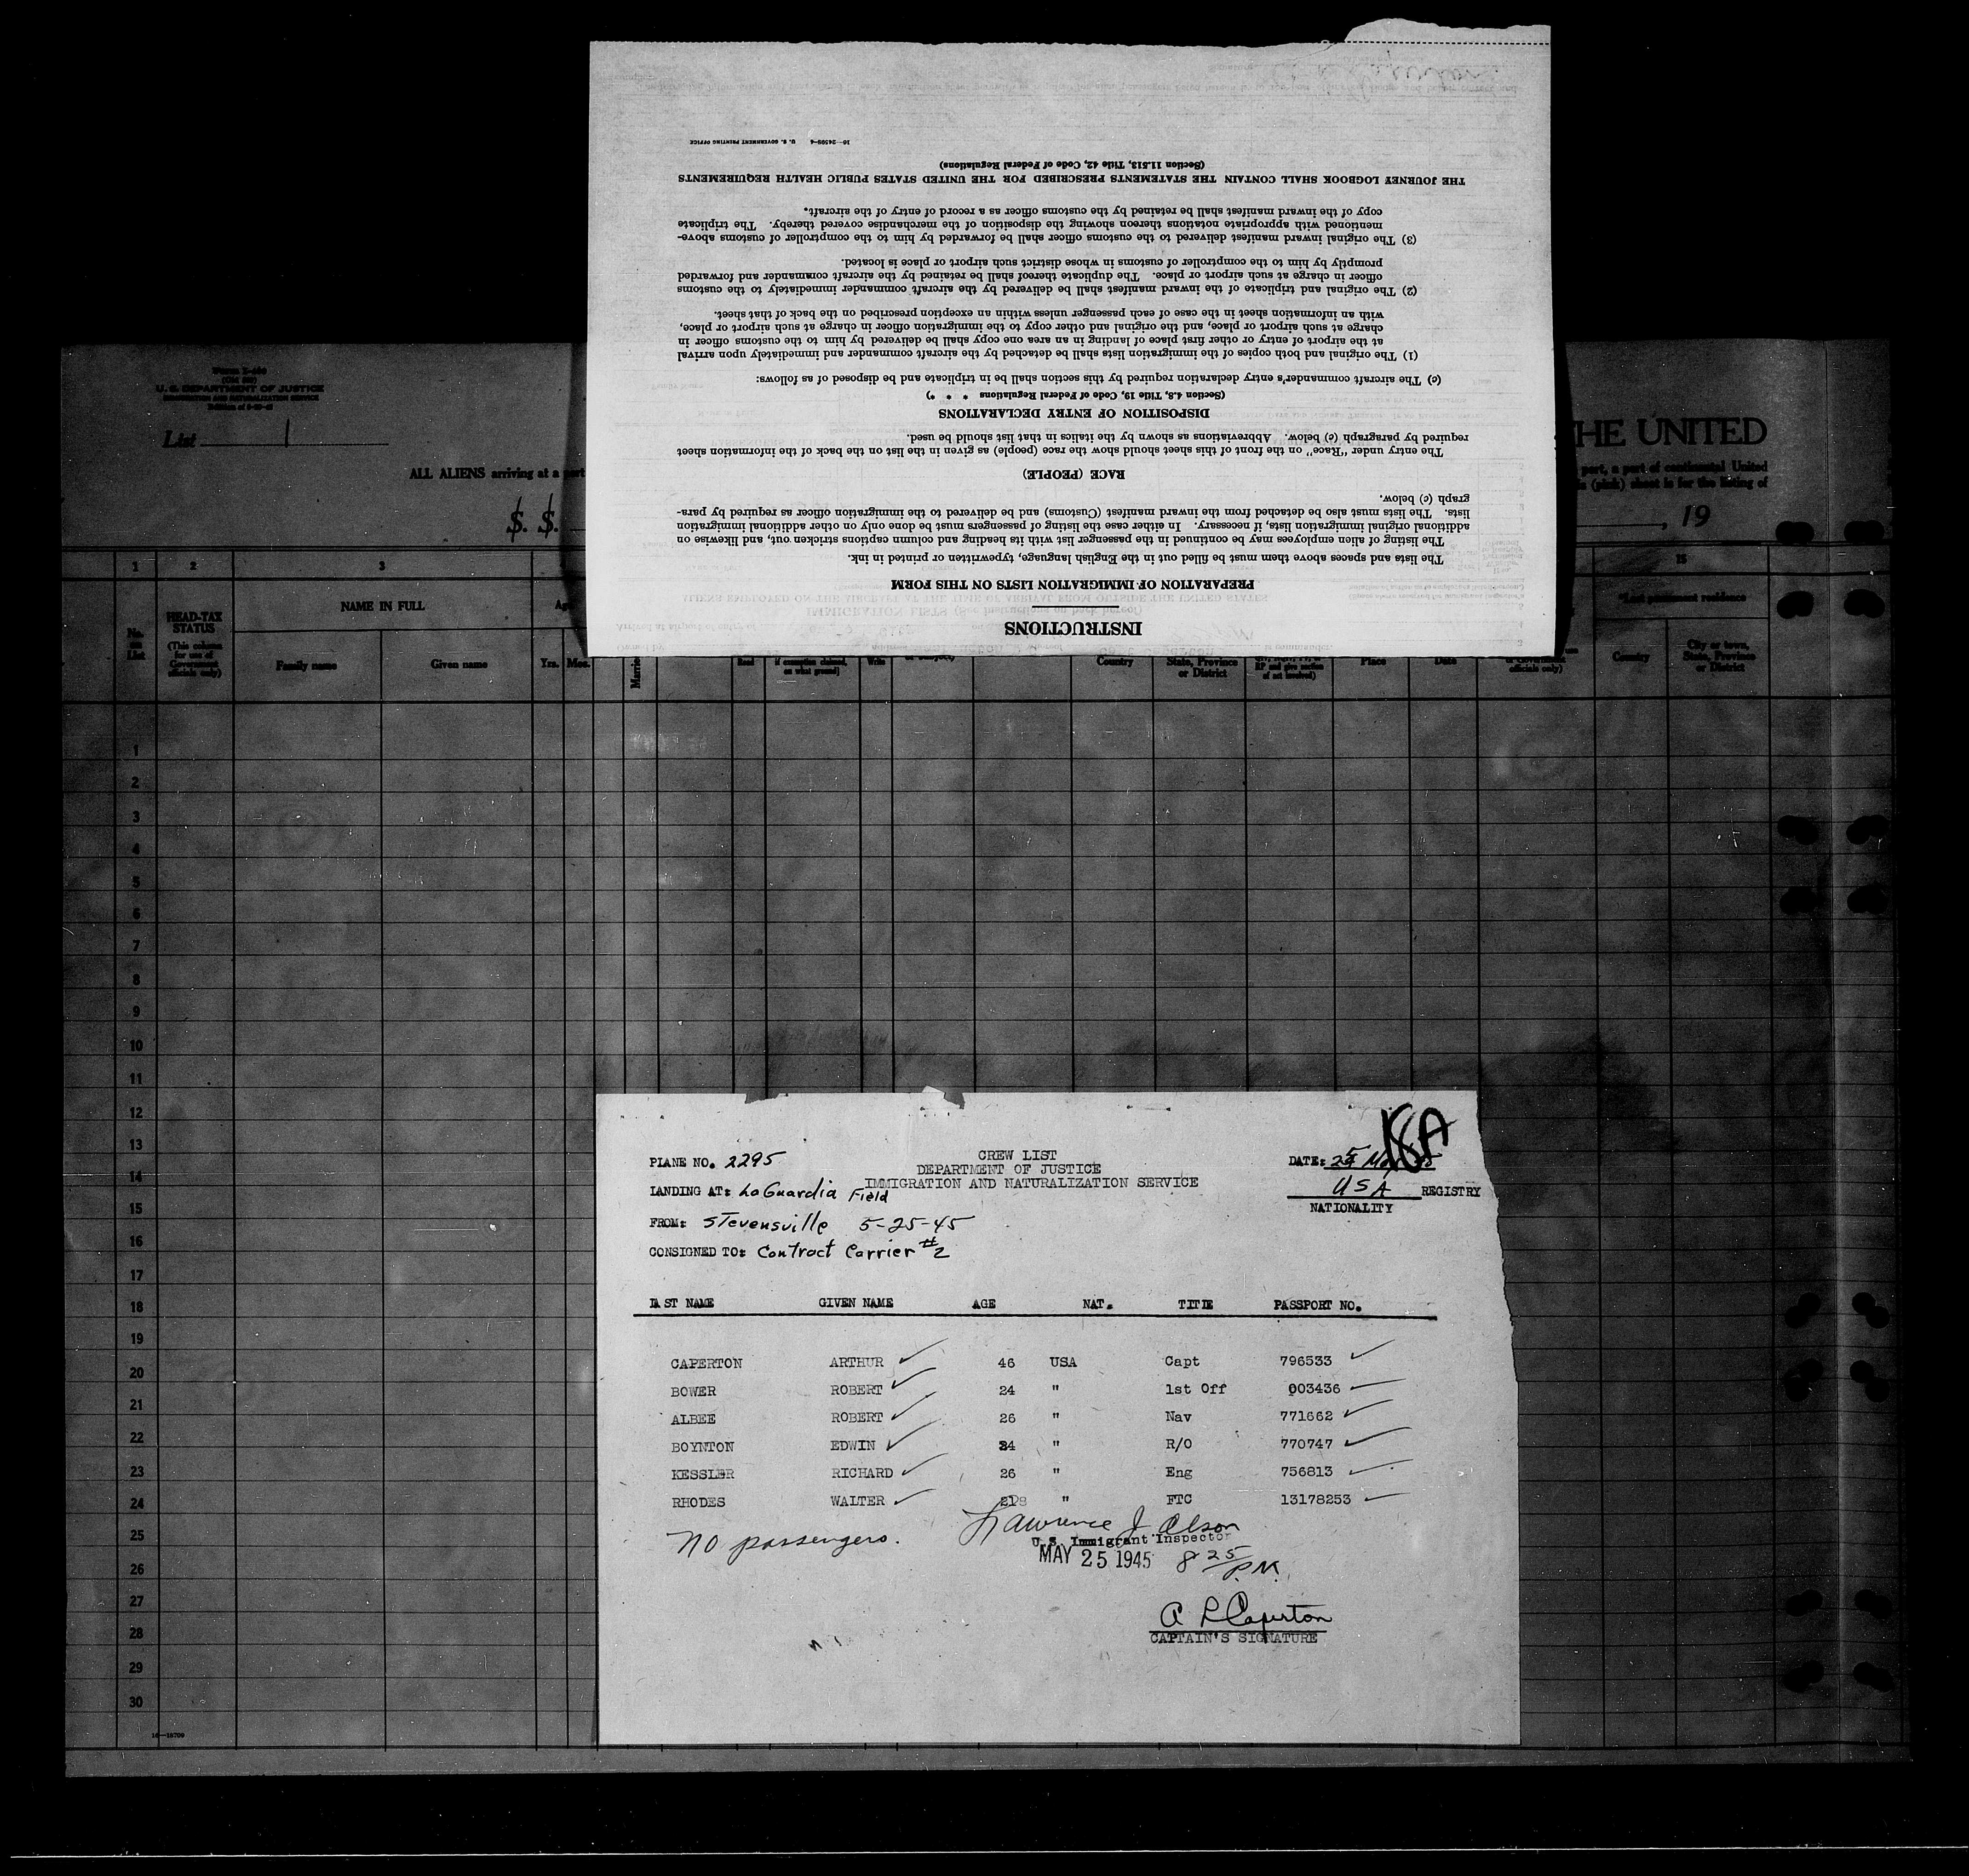 INSTRUCTIONS
PREPARATION OF IMMIGRATION LISTS ON THIS FORM
The lists and spaces above them must be filled out in the English language, typewritten or printed in ink.
The listing of alien employees may be continued in the passenger list with its heading and column captions stricken out, and likewise on
additional original immigration lists, if necessary. In either case the listing of passengers must be done only on other additional immigration
lists. The lists must also be detached from the inward manifest (Customs) and be delivered to the immigration officer as required by para-
graph (c) below.
RACE (PEOPLE)
The entry under "Race" on the front of this sheet should show the race (people) as given in the list on the back of the information sheet
required by paragraph (c) below. Abbreviations as shown by the italics in that list should be used.
DISPOSITION OF ENTRY DECLARATIONS
(Section 4.8, Title 19, Code of Federal Regulations * * *)
(c) The aircraft commander's entry declaration required by this section shall be in triplicate and be disposed of as follows:
(1) The original and both copies of the immigration lists shall be detached by the aircraft commander and immediately upon arrival
at the airport of entry or other first place of landing in an area one copy shall be delivered by him to the customs officer in
charge at such airport or place, and the original and other copy to the immigration officer in charge at such airport or place,
with an information sheet in the case of each passenger unless within an exception prescribed on the back of that sheet.
(2) Original and triplicate of the inward manifest shall be delivered by the aircraft commander immediately to the customs
officer in charge at such airport or place. The duplicate thereof shall be retained by the aircraft commander and forwarded
promptly by him to the comptroller of customs in whose district such airport or place is located.
(3) The original inward manifest delivered to the customs officer shall be forwarded by him to the comptroller of customs above-
mentioned with appropriate notations thereon showing the disposition of the merchandise covered thereby. The triplicate
copy of the inward manifest shall be retained by the customs officer as a record of entry of the aircraft.
THE JOURNEY LOGBOOK SHALL CONTAIN THE STATEMENTS PRESCRIBED FOR THE UNITED STATES PUBLIC HEALTH REQUIREMENTS
(Section 11.513, Title 42, Code of Federal Regulations)
16—24599-4 U. S. GOVERNMENT PRINTING OFFICE
U. S. DEPARTMENT OF JUSTICE
IMMIGRATION AND NATURALIZATION SERVICE
List 1
HE UNITED
ALL ALIENS arriving at a port
part, a part of continental United
(pink) sheet is for the listing of
S. S.
, 19
1 2 3 15
No. on List
HEAD-TAX STATUS
(This column for use of Government officials only)
NAME IN FULL
Family name Given name
Yrs. Mos.
Read
if exemption claimed, on what ground]
Write
Country
State, Province or District
Place
Date
officials only)
*Last permanent residence
Country
City or town, State, Province or District
1
2
3
4
5
6
7
8
9
10
11
12
13
14
15
16
17
18
19
20
21
22
23
24
25
26
27
28
29
30
18A
CREW LIST
DEPARTMENT OF JUSTICE
IMMIGRATION AND NATURALIZATION SERVICE
PLANE NO. 2295
DATE: 25 May 45
LANDING AT: LaGuardia Field
USA REGISTRY
NATIONALITY
FROM: Stevensville 5-25-45
CONSIGNED TO: Contract Carrier #2
LAST NAME GIVEN NAME AGE NAT. TITLE PASSPORT NO.
CAPERTON ARTHUR 46 USA Capt 796533
BOWER ROBERT 24 " 1st Off 003436
ALBEE ROBERT 26 " Nav 771662
BOYNTON EDWIN 24 " R/O 770747
KESSLER RICHARD 26 " Eng 756813
RHODES WALTER " FTC 13178253
No passengers.
Lawrence J Olson
U.S. Immigrant Inspector
MAY 25 1945 8 25 P.M.
A L Caperton
CAPTAIN'S SIGNATURE